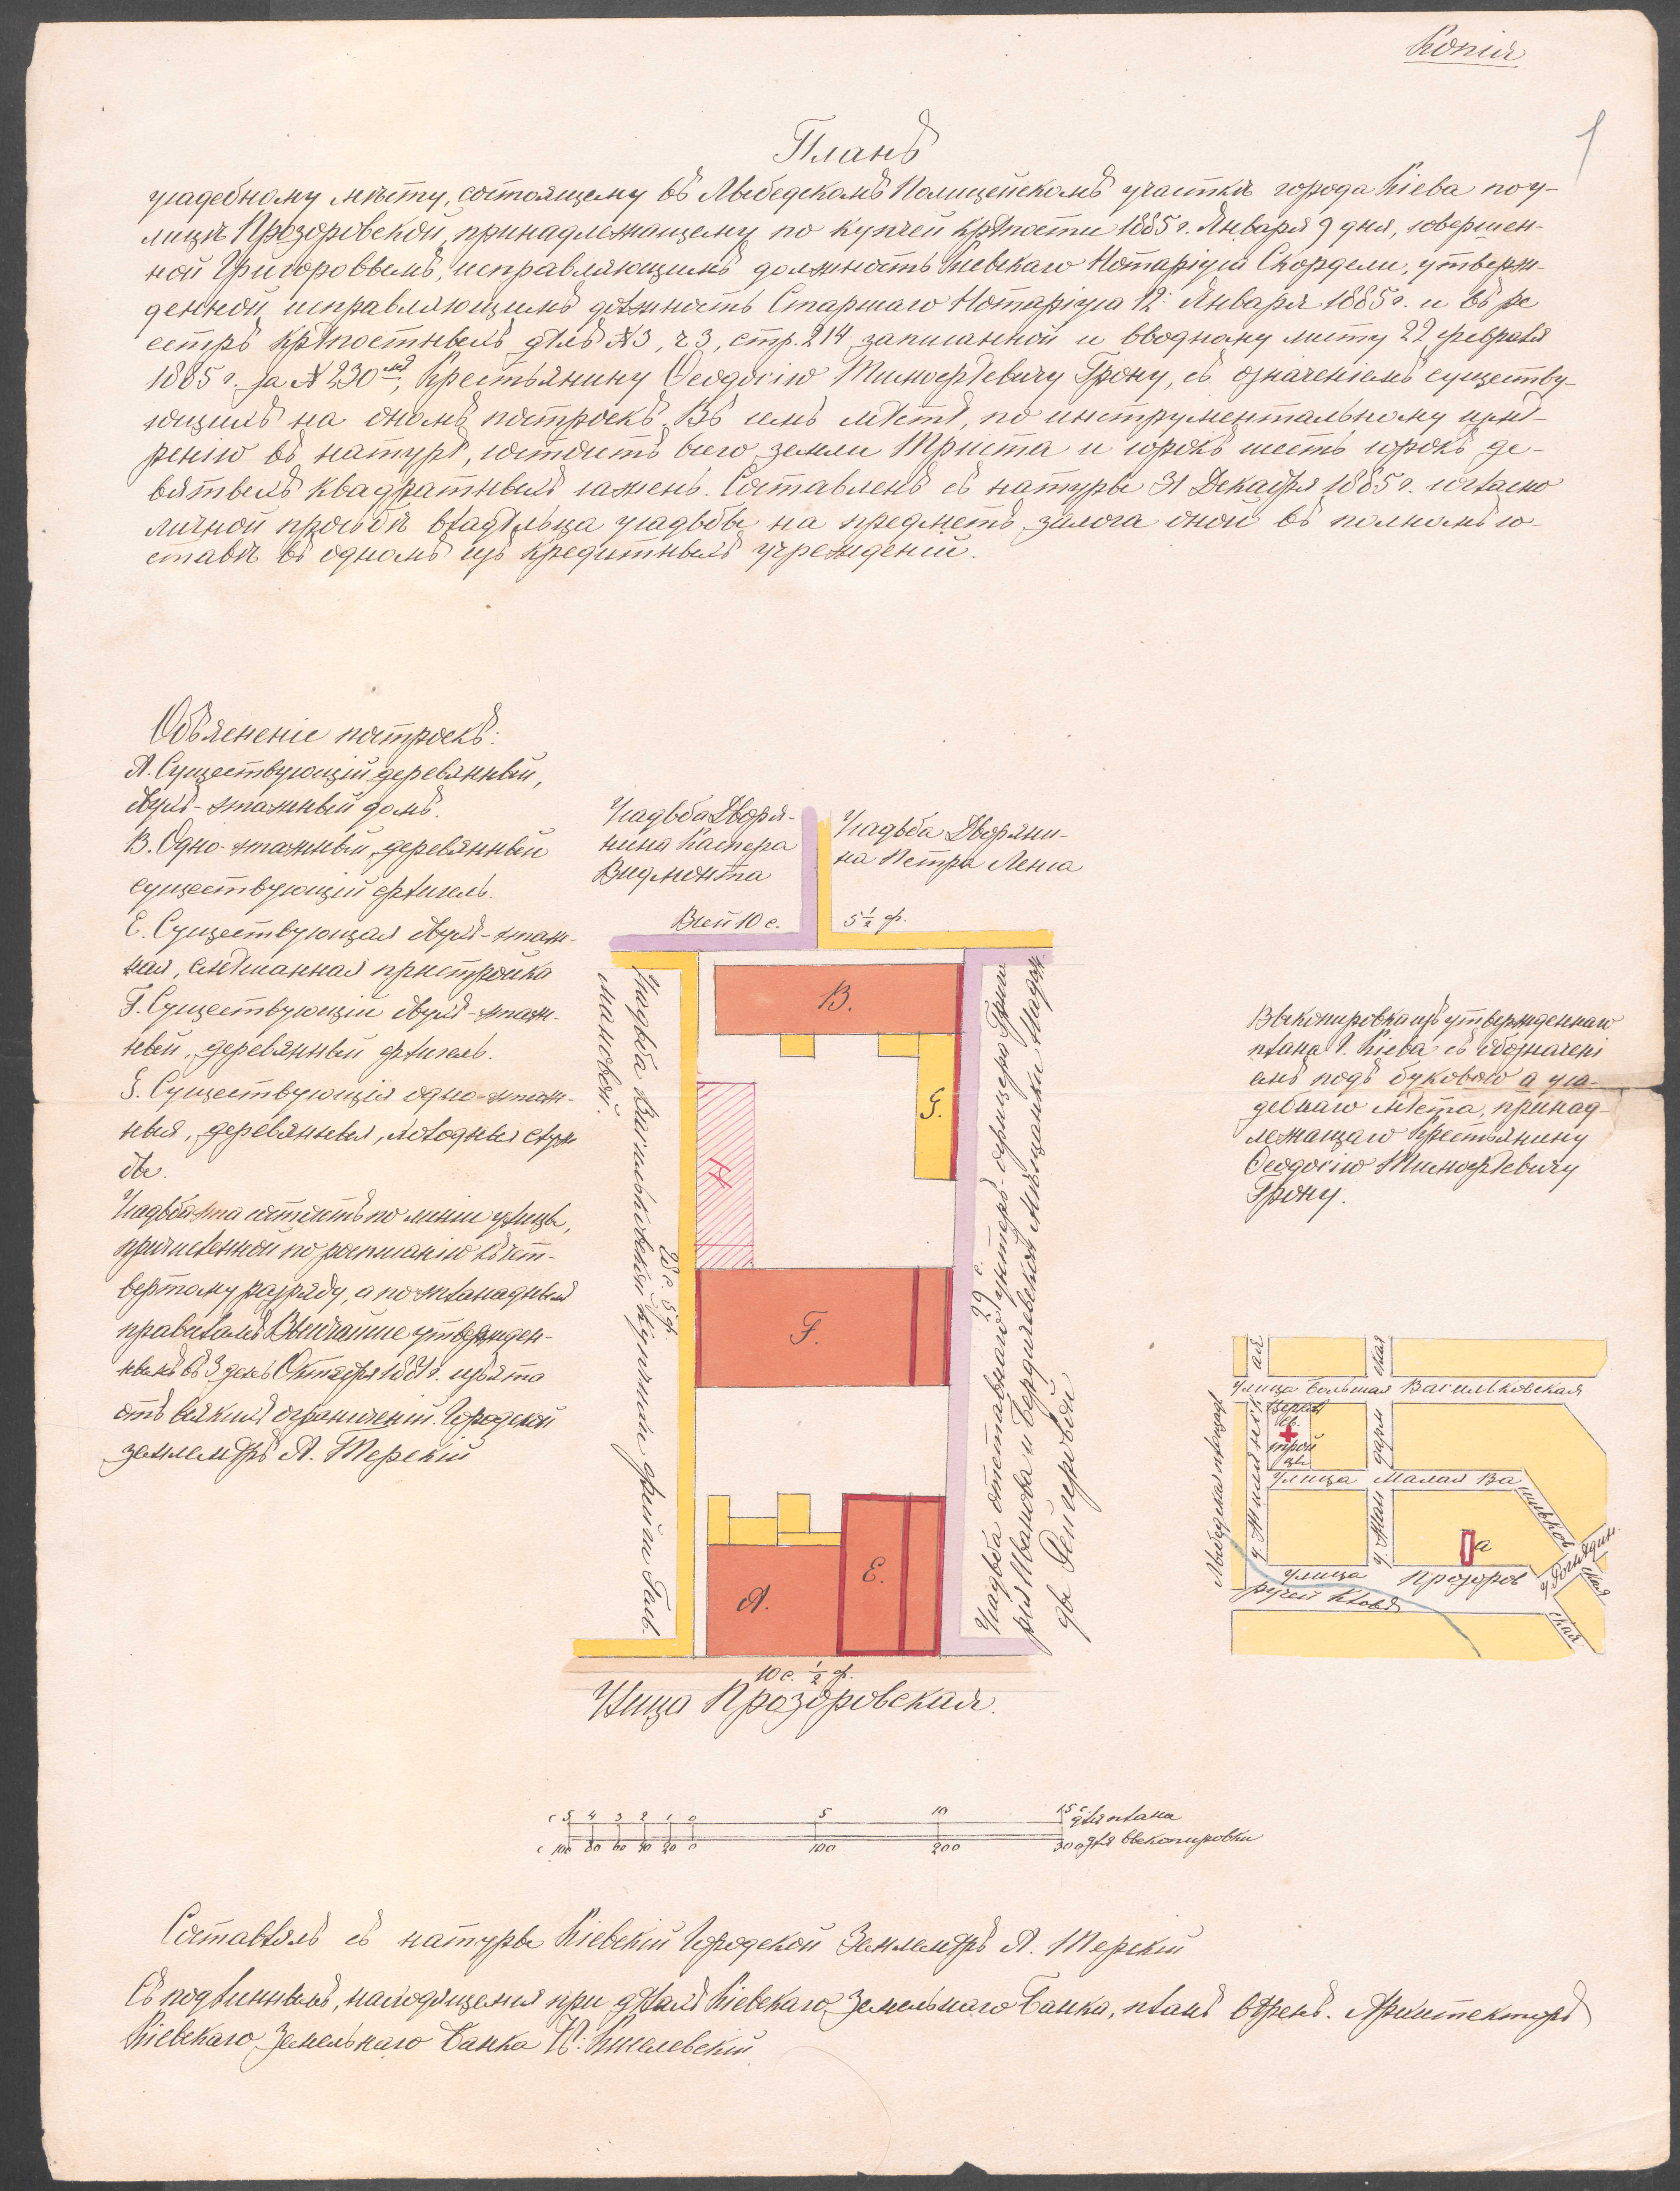 Копія
1
Планъ
усадебному мѣсту, состоящему въ Лыбедскомъ Полицейскомъ участкѣ города Кіева по у-
лицѣ Прозоровской, принадлежащему по купчей крѣпости 1885 г. Января 9 дня, совершен-
ной Григоровымъ, исправляющимъ должность Кіевскаго Нотаріуса Скордели, утверж-
денной исправляющимъ должность Старшаго Нотаріуса 12 Января 1885 г. и въ ре
естръ крѣпостныхъ дѣлъ №3, ч 3, стр. 214 записанной и вводному листу 22 февраля
1885 г. за № 230мъ, Крестьянину Ѳеодосію Тимофѣевичу Грону, съ означеніемъ существу-
ющихъ на ономъ построекъ. Въ семъ мѣстѣ, по инструментальному измѣ-
ренію въ натурѣ, состоитъ всего земли Триста и сорокъ шесть сорокъ де-
вятыхъ квадратныхъ сажень. Составленъ съ натуры 31 Декабря 1885 г. согласно
личной просьбѣ владѣльца усадьбы на предметъ залога оной въ полномъ со-
ставѣ въ одномъ изъ кредитныхъ учрежденій.
Объясненіе построекъ:
А. Существующій деревянный,
двухъ-этажный домъ.
В. Одно-этажный, деревянный
существующій флигель.
Е. Существующая двухъ-этаж-
ная, смѣшанная пристройка
F. Существующій двухъ-этаж-
ный, деревянный флигель.
G. Существующія одно-этаж-
ныя, деревянныя, холодныя служ
бы.
Усадьба эта состоитъ по линіи улицы,
причисленной по росписанію къ чет-
вертому разряду, а по
правиламъ Высочайше утвержден-
нымъ въ 3 день Октября 1861 г. изъята
отъ всякихъ ограниченій. Городской
землемѣръ А. Терскій
Усадьба Дворя-
нина Каспера
Видмонта
Усадьба Дворяни-
на Петра Ленса
Всей 10 с.
5 ½ ф.
Усадьба Васильковской купчихи Фейги Галь.
мановой.
28 с. 5 ф.
В.
G.
F.
А.
Е.
29 с.
Усадьба отставнаго унтеръ-офицера Григо
рія Иванова и Бердичевской Мѣщанки Мадж.
ды
10 с. ½ ф.
Улица Прозоровская.
Выкопировка изъ утвержденнаго
плана г. Кіева съ обозначені
емъ подъ буквою а уса-
дебнаго мѣста, принад-
лежащаго Крестьянину
Ѳеодосію Тимофѣевичу
Грону.
ая
ская
улица Большая Васильковская
Лыбедская площадь
у. Жилянск
Церков
св.
трой
цы
улица Малая Ва
сильков
ская
а
улица Прозоров
ская
ручей Кловъ
у. Рогнѣдин.
ская
с 5 4 3 2 1 0 5 10 15 с. для плана
с 100 80 60 40 20 0 100 200 300 для выкопировки
Составлялъ съ натуры Кіевскій Городской Землемѣръ А. Терскій
Съ подлиннымъ, находящемся при дѣлахъ Кіевскаго Земельнаго Банка, планъ вѣренъ. Архитекторъ
Кіевскаго Земельнаго Банка